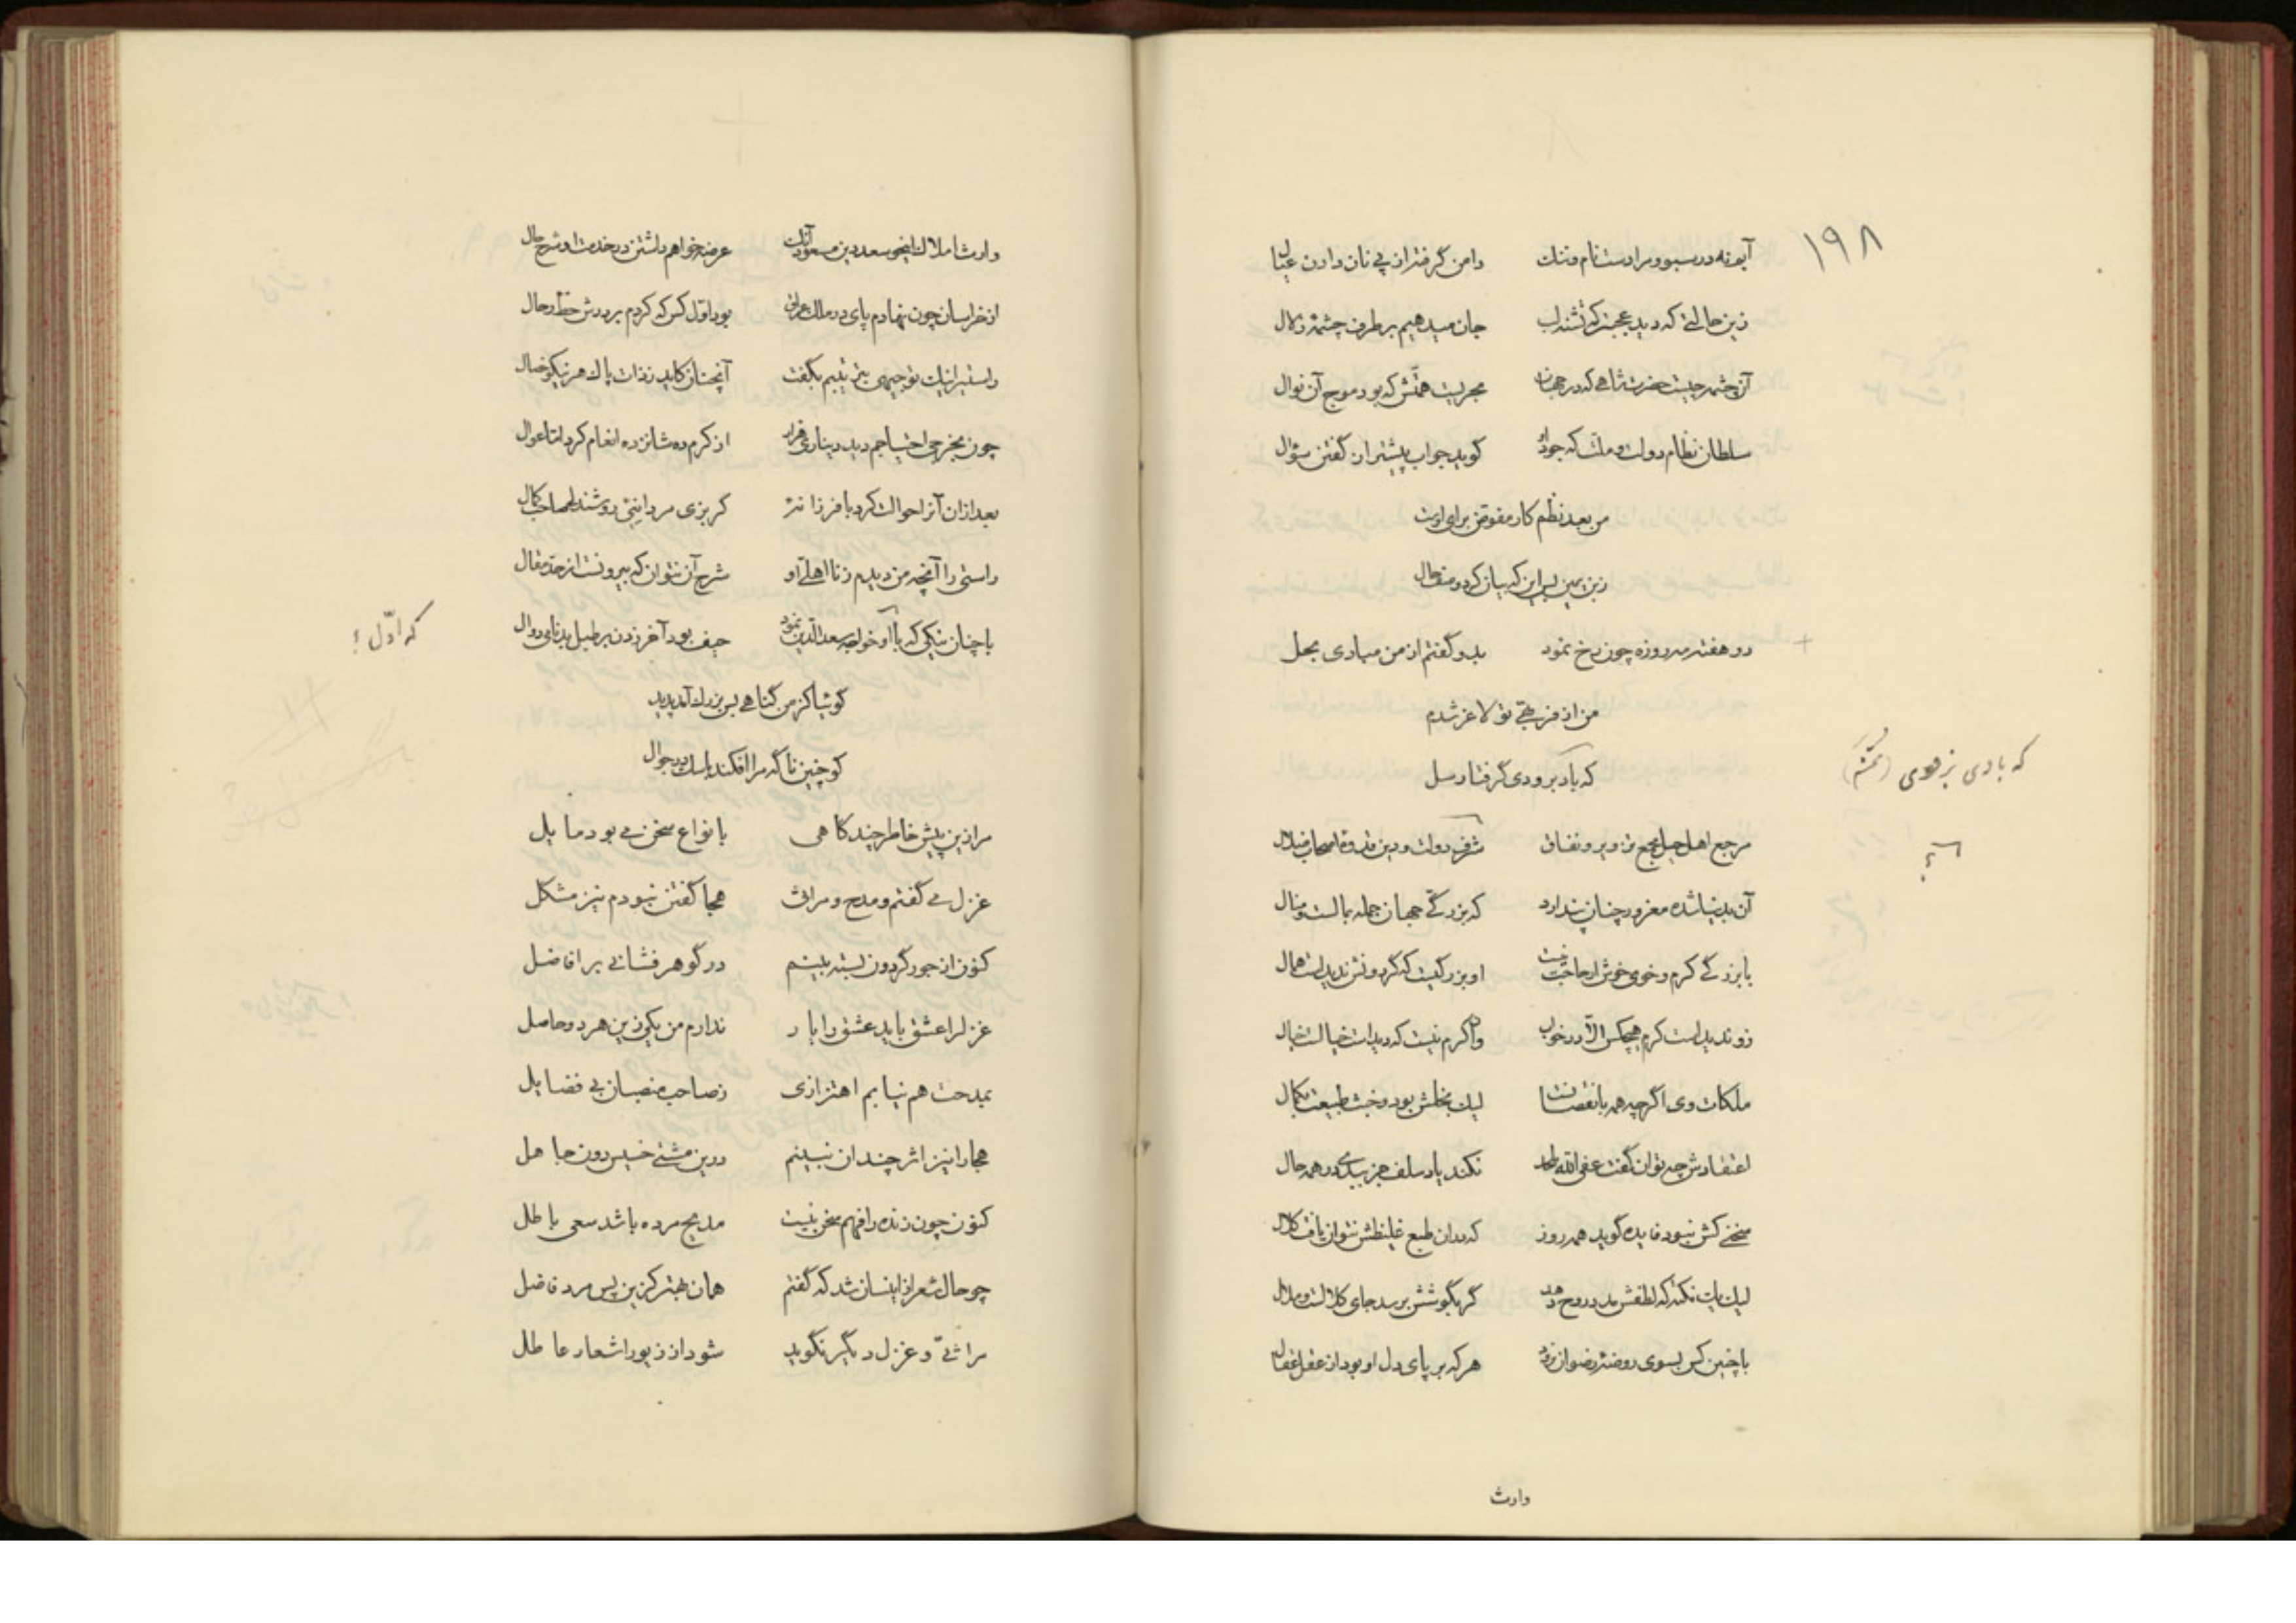 ۱۹۸
آبونه در سبو و مرا دست نام و ننک دامن کرفته از پی نان دادن عیال
زین حالتی که دید عجبتر که تشنه لب جان میدهیم بر طرف چشمهٔ زلال
آن چشمه چیست حضرت شاهی که در جهان بحریست همتش که بود موج آن نوال
سلطان نظام دولت و ملت که جود او کوید جواب پیشتر از کفتن سؤال
من بعد نظم کار مفوض برای اوست
زین پس این که بیان کرد وصف حال
دو هفته مه روزه چون رخ نمود بدو کفتم از من مبادی بحل
من از فربهی تو لاغر شدم
که باد برودی کرفتار سل
که بادی بزودی
مرجع اهل حیل مجمع تزویر و نفاق شرف دولت و دین قدوهٔ اصحاب ضلال
؟
آن بدنیا شده مغرور چنان پندارد که بزرکی جهان جمله بمالست و منال
با بزرکی کرم و خوی خوش ار حاجت نیست او بزرکیست که کردونش ندیدست همال
زو ندیدست کرم هیچکس الا در خواب وان کرم نیست که دیدست خیالست خیال
ملکات وی اکر چه همه با نقصانست لیک بخلش بود و خبث طبیعت بکمال
اعتقادش چه توان کفت عفی الله نکند یاد سلف جز ببدی در همه حال
سخنی کش نبود فایده کوید همه روز که بدان طبع غلیظش نتوان یافت کلال
لیک یک نکته که لطفش مدد روح دهد کر بکوشش برسد جای کلالست و ملال
با چنین کس بسوی روضهٔ رضوان نرود هر که بر پای دل او بود از عقل عقال
وارث
وارث املاک اینجو سعد دین مسعود آنک عرضه خواهم داشتن در خدمت او شرح حال
از خراسان چون نهادم پای در ملک عراق بود اول کس که کردم بر درش حط رحال
راستی را نیک توجیهی بترتیبم بکفت آنچنان کاید ز ذات پاک هر نیکو خصال
چون بخرجی احتیاجم دید دیناری قراد از کرم ده شانزده انعام کرد اما عوال
بعد از آن آنرا حوالت کرد با فرزانه کربزی مردانی روشندل صاحب کمال
راستی را آنچه من دیدم ز نا اهلی او شرح آن نتوان که بیرونست از حد مقال
با چنان نیکی که با او خواجه سعدالدین نمود حیف بود آخر زدن بر طبل بدنامی دوال
که اوّل ؛
کوئیا کز من کناهی بس بزرک آمد پدید
کو چنین ناکه مرا افکند با سک در جوال
مرا زین پیش خاطر چند کاهی بانواع سخن می بود مایل
غزل می کفتم و مدح و مراثی هجا کفتن نبودم نیز مشکل
کنون از جور کردون بسته بینم در کوهر فشانی بر افاضل
غزلرا عشق باید عشق را یار ندارم من یکی زین هر دو حاصل
بمدحت هم نیابم اهتزازی ز صاحب منصبان بی فضایل
هجا را نیز اثر چندان نبینم درین مشتی خسیس دون جاهل
کنون چون زنده را فهم سخن نیست مدیح مرده باشد سعی باطل
چو حال شعر از اینسان شد که کفتم همان بهتر کزین پس مرد فاضل
مراثی و غزل دیکر نکوید شود از زیور اشعار عاطل